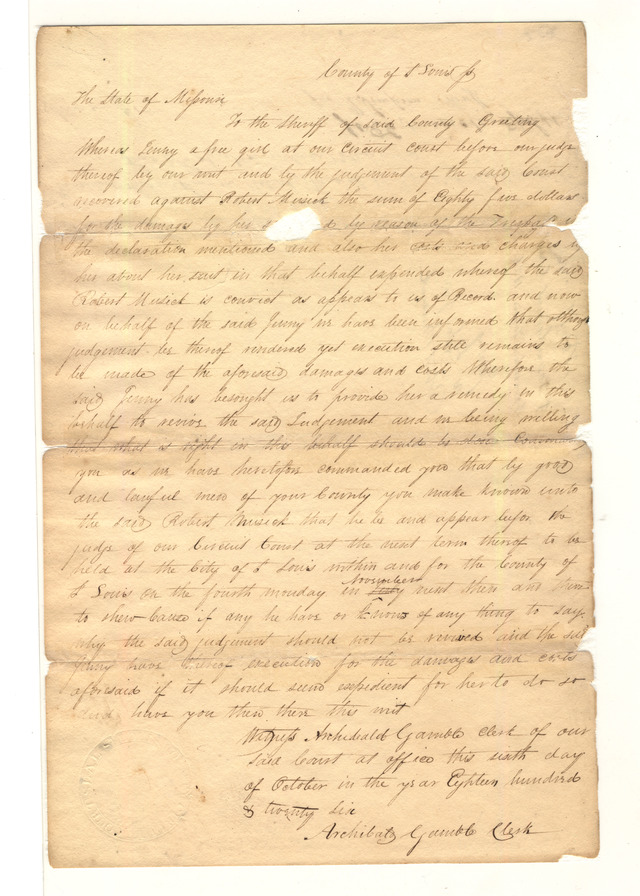 County of St Louis ss
The State of Missouri
To the Sheriff of said County Greeting
Whereas Jenny a free girl at our Circuit Court before our judge
thereof by our writ and by the judgement of the said Court
recovered against Robert Musick the sum of Eighty five dollars
for the damages by her by reason of the Trespass in
the declaration mentioned and also her costs and charges by
her about her suit in that behalf expended whereof the said
Robert Musick is convict as appears to us of Record and now
on behalf of the said Jenny we have been informed that although
judgement be thereof rendered yet execution still remains to
be made of the aforesaid damages and costs Wherefore the
said Jenny has besought us to provide her a remedy in this
behalf to revive the said Judgement and we being willing
that what is right in this behalf should be done Command
you as we have heretofore commanded you that by good
and lawful men of your County you make known unto
the said Robert Musick that he be and appear before the
judge of our Circuit Court at the next term thereof to be
held at the City of St Louis within and for the County of
St Louis on the fourth monday in November next then and there
to shew Cause if any he have or know of any thing to say
why the said judgement should not be revived and the said
Jenny have thereof execution for the damages and costs
aforesaid if it should seem expedient for her to do so
and have you then there this writ
Witness Archibald Gamble Clerk of our
said Court at office this sixth day
of October in the year Eighteen hundred
& twenty six
Archibald Gamble Clerk